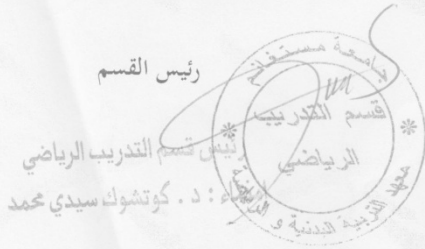 رئيس القسم
جامعة مستغانم
قسم التدريب
الرياضي
معهد التربية البدنية و الرياضية
رئيس قسم التدريب الرياضي
د . كوتشوك سيدي محمد